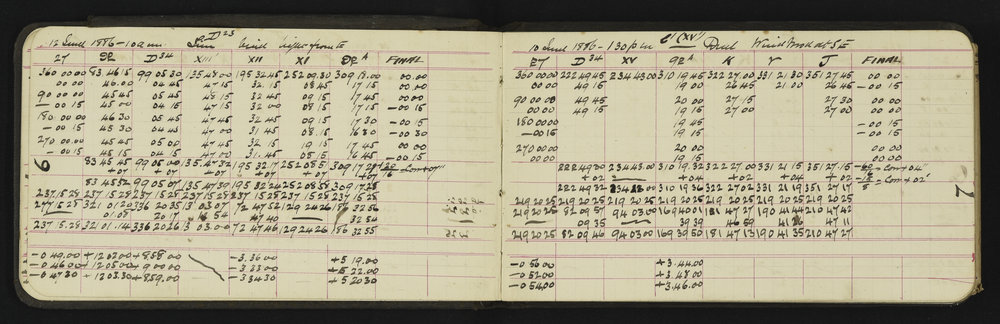 12 June 1886 - 10 am. D 23 Wind light from E
27 92 D 34 XIII XII XI 92A FINAL
360 00 00 83 46 15 99 05 30 135 48 00 195 32 45 252 09 30 309 18 00 00.00
00 00 46.00 04 45 47 15 32 15 08 45 17 15 00.00
90 00 00 45 45 05 45 47 45 32 45 09 15 17 45 00.00
-00 15 45 00 04 15 47 15 32 00 08 15 17 15 -00 15
180 00 00 46 30 05 45 47 45 32 45 09 15 17 30 00.00
-00 15 45 30 04 45 47 00 31 45 08 15 16 30 -00 30
270 00 00 45 45 05 00 47 45 32 15 09 15 17 45 00.00
-00 15 45 15 04 15 47 00 31.45 08 15 16 45 -00 15
83 45 45 99 05 00 135 47 32 195 32 17 252 08 51 309 17 21
+07 +07 +07 +07 +07 +07
83 45 52 99 05 07 135 47 30 195 32 24 252 08 58 309 17 28
237 15 28 237 15 28 237 15 28 237 15 28 237 15 28 237 15 28 237 15 28
237 15 28 321 01 20 336 20 35 13 03 07 72 47 52 129 24 26 186 32 56
01.07 20 17 54 47 40 32 54
237 15.28 321 01.14 336 20 26 13 03.00 72 47 46 129 24 26 186 32 55
-0 49.00 +12 02 00 +8 58 00 -3.36 00 +5 19.00
-0 46 00 +12 05 00 +9 00 00 -3 33 00 +5 22.00
-0 47 30 +12 03 30 +8 59.00 -3 34 30 +5 20 30
6
10 June 1886 - 1 30 pm C1 (XV) Dull Wind Mod at SE
27 D 34 XV 92A K Y J FINAL
360 00 00 222 49 45 234 43 00 310 19 45 322 27 00 331 21 30 351 27 45 00.00
00 00 49 15 19 15 26 45 21 00 26 45 -00 15
90 00 00 49 45 20 00 27 15 27 30 00.00
00 00 49 15 19 15 27 00 27 00 00.00
180 00 00 19 45 -00 15
-00 15 19 15 -00 15
270 00 00 20 00
00 00 19 15
222 49 30 234 43.00 310 19 32 322 27 00 331 21 15 351 27 15
+02 +04 +02 +04 +02
222 49 32 310 19 36 322 27 02 331 21 19 351 27 17
219 20 25 219 20 25 219 20 25 219 20 25 219 20 25 219 20 25 219 20 25
219 20 25 82 09 57 94 03 00 169 40 01 181 47 27 190 41 44 210 47 42
09 35 39 39 46 59 47 11
219 20 25 82 09 46 94 03 00 169 39 50 181 47 13 190 41 35 210 47 27
-0 56 00 +3.44.00
-0 52 00 +3.48 00
-0 54 00 +3.46.00
7